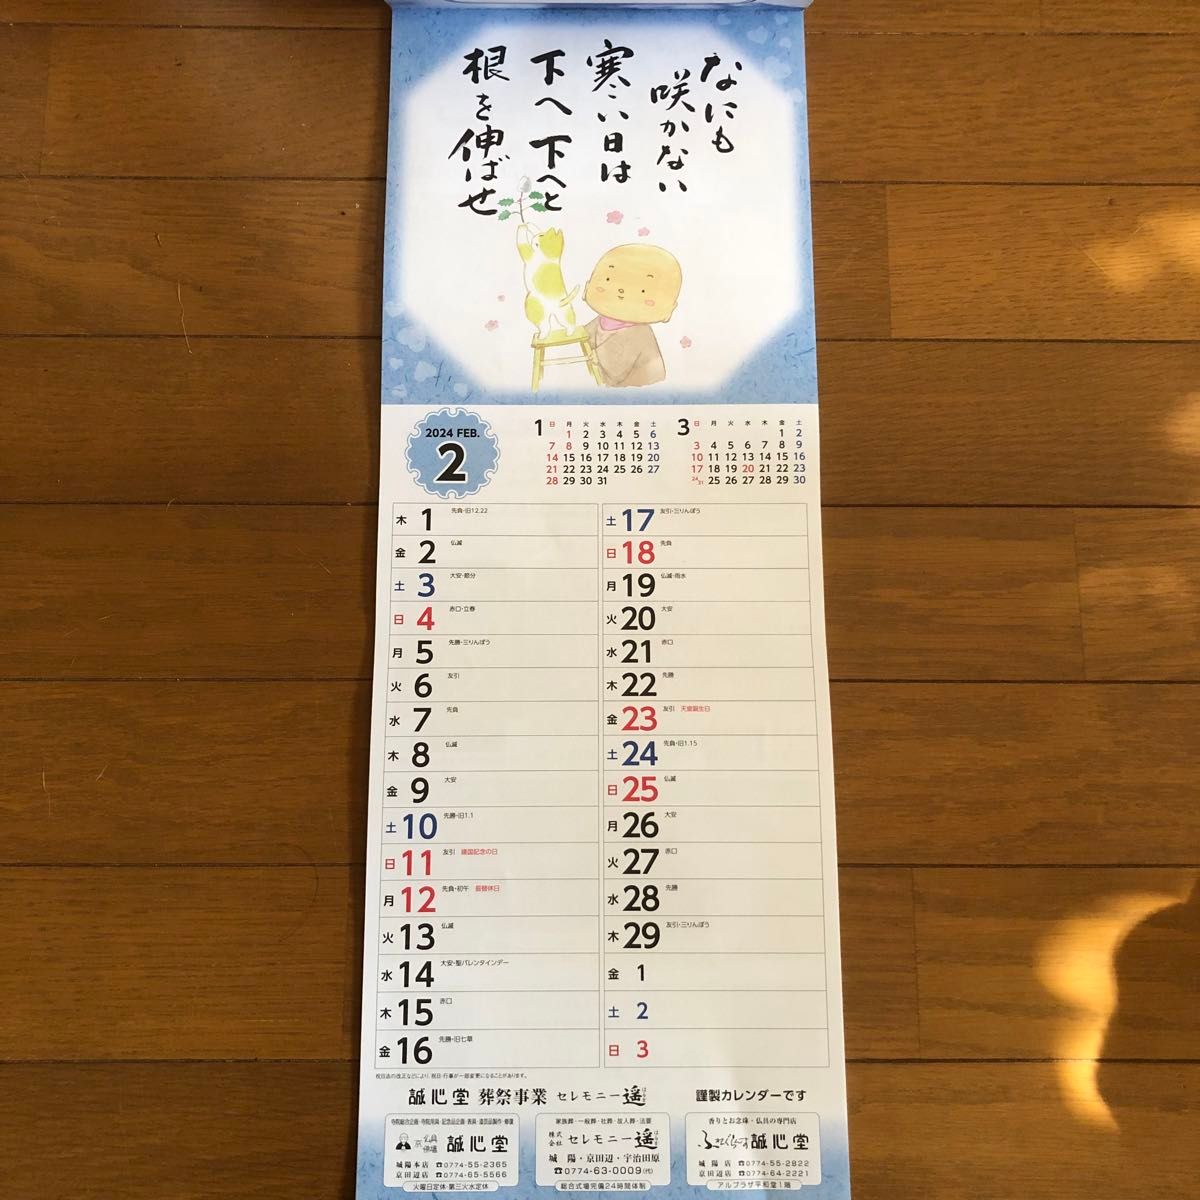 なにも
咲かない
寒い日は
下へ下へと
根を伸ばせ
2024 FEB.
2
1
日 月 火 水 木 金 土
1 2 3 4 5 6
7 8 9 10 11 12 13
14 15 16 17 18 19 20
21 22 23 24 25 26 27
28 29 30 31
3
日 月 火 水 木 金 土
1 2
3 4 5 6 7 8 9
10 11 12 13 14 15 16
17 18 19 20 21 22 23
24/31 25 26 27 28 29 30
木 1 先負・旧12.22
金 2 仏滅
土 3 大安・節分
日 4 赤口・立春
月 5 先勝・三りんぼう
火 6 友引
水 7 先負
木 8 仏滅
金 9 大安
土 10 先勝・旧1.1
日 11 友引 建国記念の日
月 12 先負・初午 振替休日
火 13 仏滅
水 14 大安・聖バレンタインデー
木 15 赤口
金 16 先勝・旧七草
土 17 友引・三りんぼう
日 18 先負
月 19 仏滅・雨水
火 20 大安
水 21 赤口
木 22 先勝
金 23 友引 天皇誕生日
土 24 先負・旧1.15
日 25 仏滅
月 26 大安
火 27 赤口
水 28 先勝
木 29 友引・三りんぼう
金 1
土 2
日 3
祝日法の改正などにより、祝日・行事が一部変更になることがあります。
誠心堂 葬祭事業 セレモニー遥 はるか 謹製カレンダーです
寺院総合企画・寺院用具・記念品企画・表具・漆芸品製作・修復
京 仏具 佛壇 誠心堂
城陽本店 ☎0774-55-2365
京田辺店 ☎0774-65-5566
火曜日定休・第三火水定休
家族葬・一般葬・社葬・故人葬・法要
株式会社 セレモニー遥 はるか
城陽・京田辺・宇治田原
☎0774-63-0009(代)
総合式場完備24時間体制
香りとお念珠・仏具の専門店
誠心堂
城陽店 ☎0774-55-2822
京田辺店 ☎0774-64-2221
アルプラザ平和堂1階